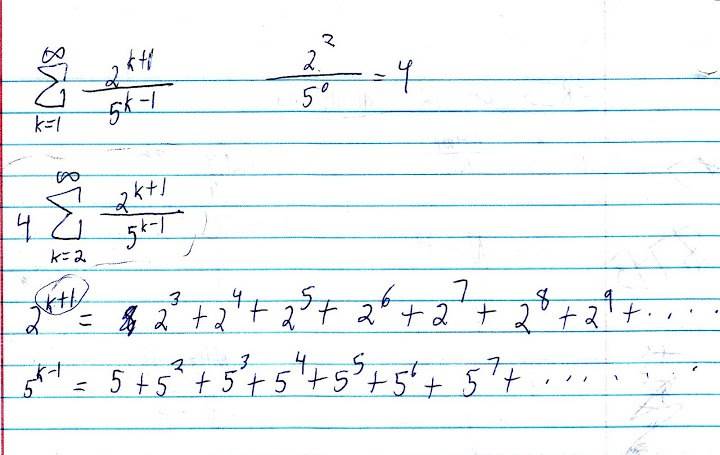 ∞ Σ k=1 2^{k+1} / 5^{k-1}    2^2 / 5^0 = 4
4 ∞ Σ k=2 2^{k+1} / 5^{k-1}
2^{k+1} = 2^3 + 2^4 + 2^5 + 2^6 + 2^7 + 2^8 + 2^9 + ....
5^{k-1} = 5 + 5^2 + 5^3 + 5^4 + 5^5 + 5^6 + 5^7 + .......